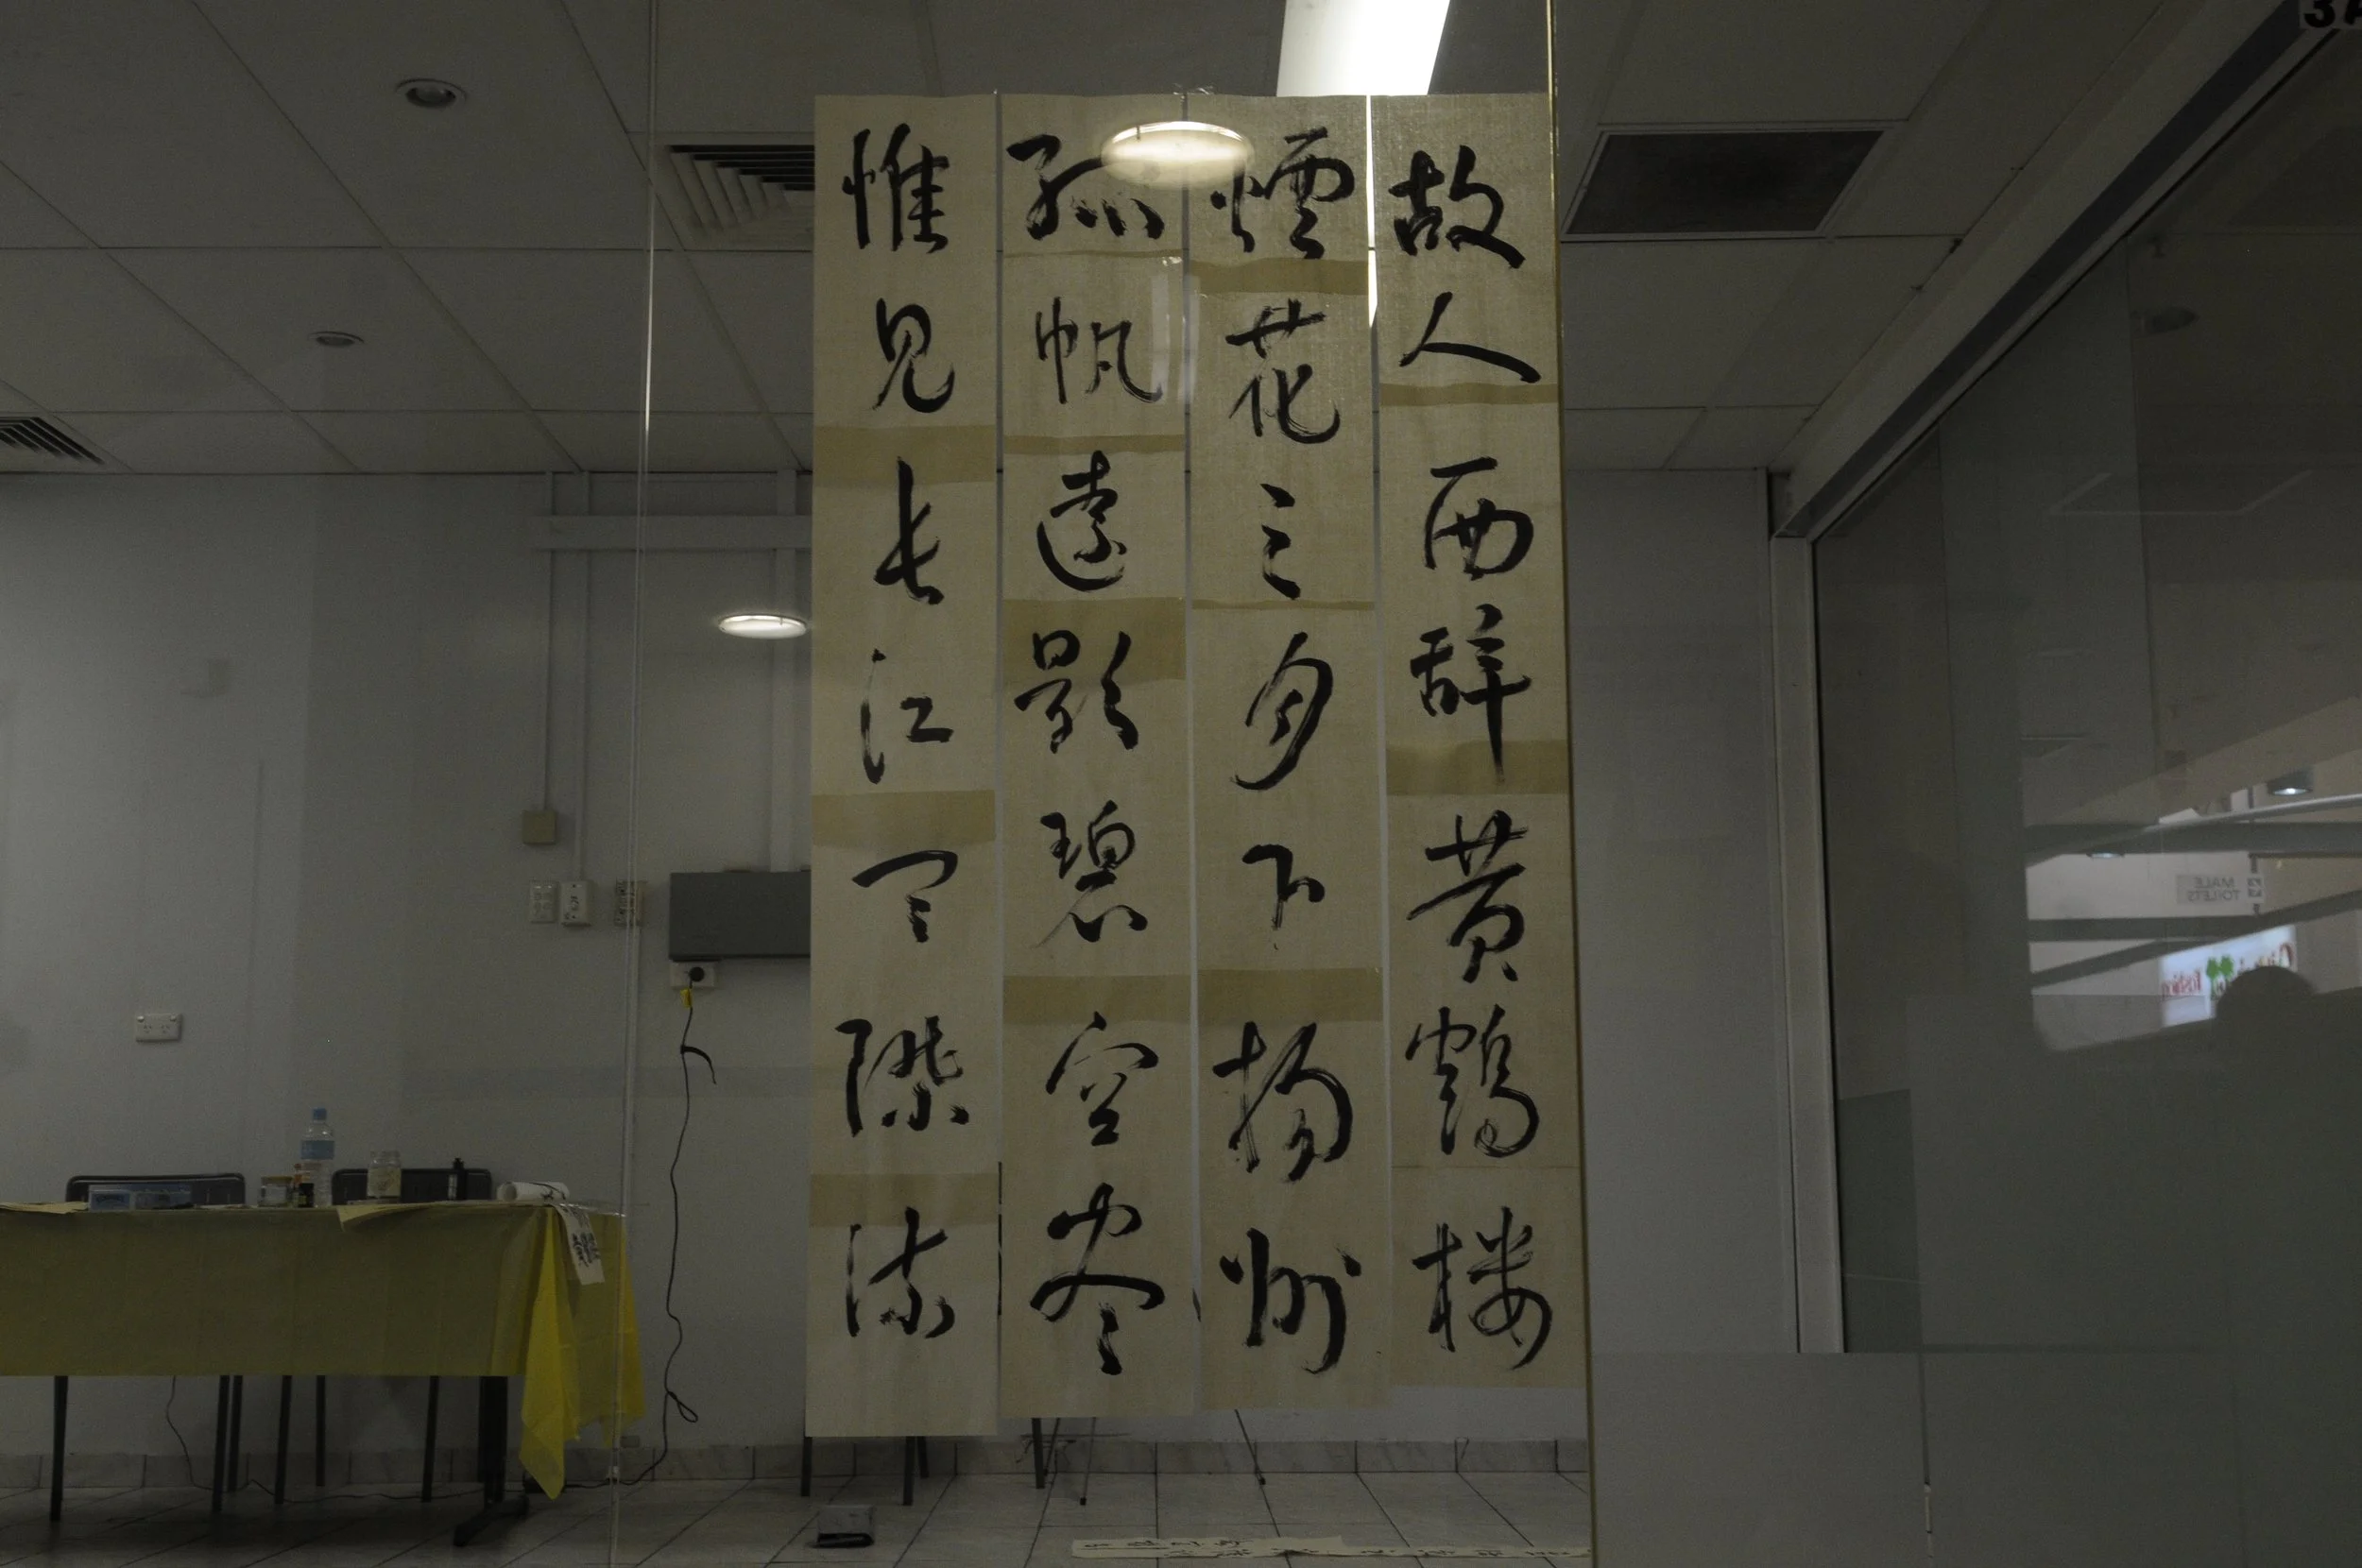 故人西辞黄鹤楼
煙花三月下揚州
孤帆遠影碧空尽
惟見长江天際流
MALE
TOILETS
3A